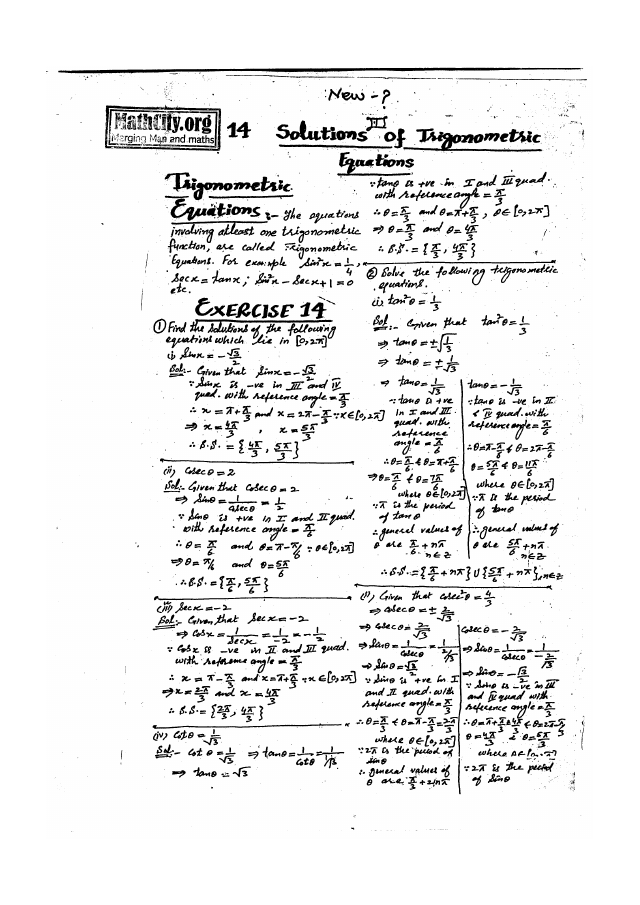 New - ?
MathCity.org
Merging Man and maths
14 Solutions of Trigonometric
Equations
Trigonometric
Equations :- The equations
involving atleast one trigonometric
function, are called Trigonometric
Equations. For example Sin²x = 1/4,
Secx = tanx ; Sin²x - Secx + 1 = 0
etc.
EXERCISE 14
① Find the solutions of the following
equations which lie in [0, 2π]
(i) Sinx = -√3/2
Sol:- Given that Sinx = -√3/2
∵ Sinx is -ve in III and IV
quad. with reference angle = π/3
∴ x = π + π/3 and x = 2π - π/3 ∵ x ∈ [0, 2π]
⇒ x = 4π/3 , x = 5π/3
∴ S.S. = {4π/3, 5π/3}
(ii) Cosecθ = 2
Sol:- Given that Cosecθ = 2
⇒ Sinθ = 1/Cosecθ = 1/2
∵ Sinθ is +ve in I and II quad.
with reference angle = π/6
∴ θ = π/6 and θ = π - π/6 ∵ θ ∈ [0, 2π]
⇒ θ = π/6 and θ = 5π/6
∴ S.S. = {π/6, 5π/6}
(iii) Secx = -2
Sol:- Given that Secx = -2
⇒ Cosx = 1/Secx = 1/-2 = -1/2
∵ Cosx is -ve in II and III quad.
with reference angle = π/3
∴ x = π - π/3 and x = π + π/3 ∵ x ∈ [0, 2π]
⇒ x = 2π/3 and x = 4π/3
∴ S.S. = {2π/3, 4π/3}
(iv) Cotθ = 1/√3
Sol:- Cotθ = 1/√3 ⇒ tanθ = 1/Cotθ = 1/1/√3
⇒ tanθ = √3
∵ tanθ is +ve in I and III quad.
with reference angle = π/3
∴ θ = π/3 and θ = π + π/3 , θ ∈ [0, 2π]
⇒ θ = π/3 and θ = 4π/3
∴ S.S. = {π/3, 4π/3}
② Solve the following trigonometric
equations.
(i) tan²θ = 1/3
Sol:- Given that tan²θ = 1/3
⇒ tanθ = ±√1/3
⇒ tanθ = ± 1/√3
⇒ tanθ = 1/√3
∵ tanθ is +ve
in I and III
quad. with
reference
angle = π/6
∴ θ = π/6 & θ = π + π/6
⇒ θ = π/6 & θ = 7π/6
where θ ∈ [0, 2π]
∵ π is the period
of tanθ
∴ general values of
θ are π/6 + nπ
n ∈ Z
tanθ = -1/√3
∵ tanθ is -ve in II
& IV quad. with
reference angle = π/6
∴ θ = π - π/6 & θ = 2π - π/6
θ = 5π/6 & θ = 11π/6
where θ ∈ [0, 2π]
∵ π is the period
of tanθ
∴ general values of
θ are 5π/6 + nπ
n ∈ Z
∴ S.S. = {π/6 + nπ} ∪ {5π/6 + nπ}, n ∈ Z
(ii) Given that Cosec²θ = 4/3
⇒ Cosecθ = ± 2/√3
⇒ Cosecθ = 2/√3
⇒ Sinθ = 1/Cosecθ = 1/2/√3
⇒ Sinθ = √3/2
∵ Sinθ is +ve in I
and II quad. with
reference angle = π/3
∴ θ = π/3 & θ = π - π/3 = 2π/3
where θ ∈ [0, 2π]
∵ 2π is the period of
Sinθ
∴ general values of
θ are π/3 + 2nπ
Cosecθ = -2/√3
⇒ Sinθ = 1/Cosecθ = 1/-2/√3
⇒ Sinθ = -√3/2
∵ Sinθ is -ve in III
and IV quad. with
reference angle = π/3
∴ θ = π + π/3 = 4π/3 & θ = 2π - π/3
θ = 4π/3 & θ = 5π/3
where θ ∈ [0, 2π]
∵ 2π is the period
of Sinθ